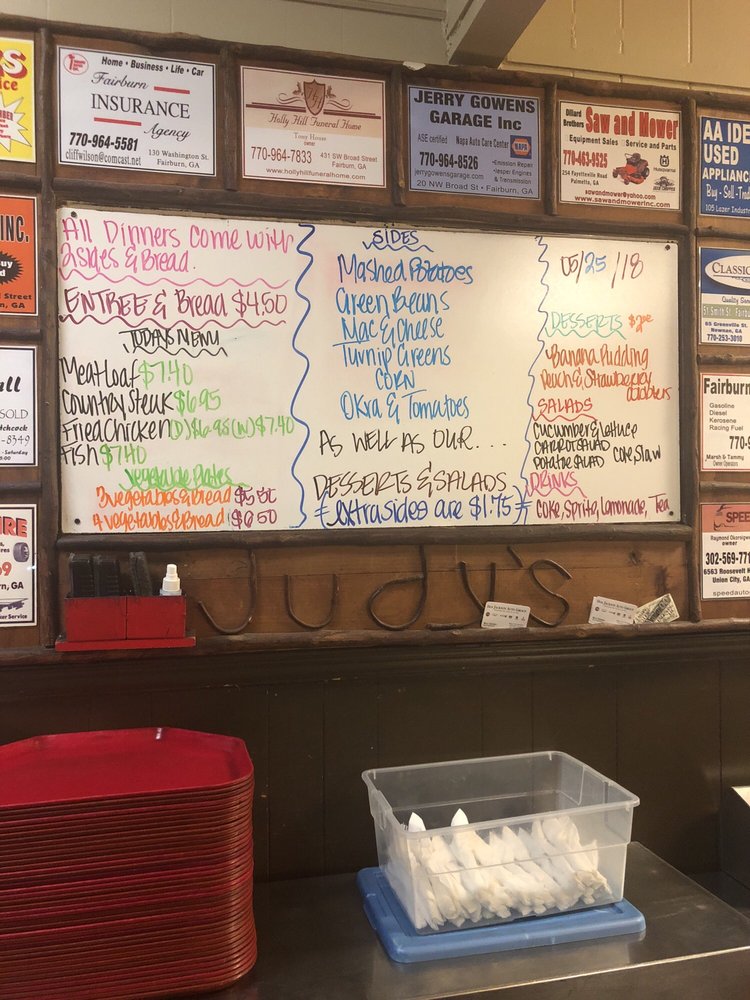 Home • Business • Life • Car
Fairburn
INSURANCE
Agency
770-964-5581
cliffwilson@comcast.net
130 Washington St.
Fairburn, GA
Holly Hill Funeral Home
Tony House
owner
770-964-7833
431 SW Broad Street
Fairburn, GA
www.hollyhillfuneralhome.com
JERRY GOWENS
GARAGE Inc
ASE certified
Napa Auto Care Center
NAPA
770-964-8526
jerrygowensgarage.com
•Emission Repair
•Jasper Engines
& Transmissions
20 NW Broad St • Fairburn, GA
Dillard
Brothers
Saw and Mower
Equipment Sales
Service and Parts
770-463-9525
254 Fayetteville Road
Palmetta, GA
sawandmower@yahoo.com
www.sawandmowerinc.com
AA IDE
USED
APPLIANC
Buy - Sell-Trad
105 Lazer Indust
INC.
Street
n, GA
All Dinners come with
2 sides & Bread.
ENTREE & Bread $4.50
TODAYS MENU
Meatloaf $7.40
Country Steak $6.95
Fried Chicken (D) $6.98 (W) $7.40
Fish $7.40
Vegetable Plates
3 vegetables & Bread $5.50
4 vegetables & Bread $6.50
SIDES
Mashed Potatoes
Green Beans
Mac & Cheese
Turnip Greens
CORN
Okra & Tomatoes
AS WELL AS OUR...
DESSERTS & SALADS
extra sides are $1.75
05/25/18
DESSERTS
Banana Pudding
Peach & Strawberry
Cobblers
SALADS
Cucumber & Lettuce
CARROT SALAD
POTATO SALAD Cole Slaw
DRINKS
Coke, Sprite, Lemonade, Tea
CLASSIC
770-253-3010
ll
SOLD
-8349
Fairburn
Gasoline
Diesel
Kerosene
Racing Fuel
Marsh & Tammy
Owner Operators
IRE
rn, GA
SPEE
owner
302-569-771
6563 Roosevelt H
Union City, GA
speedauto
Judy's